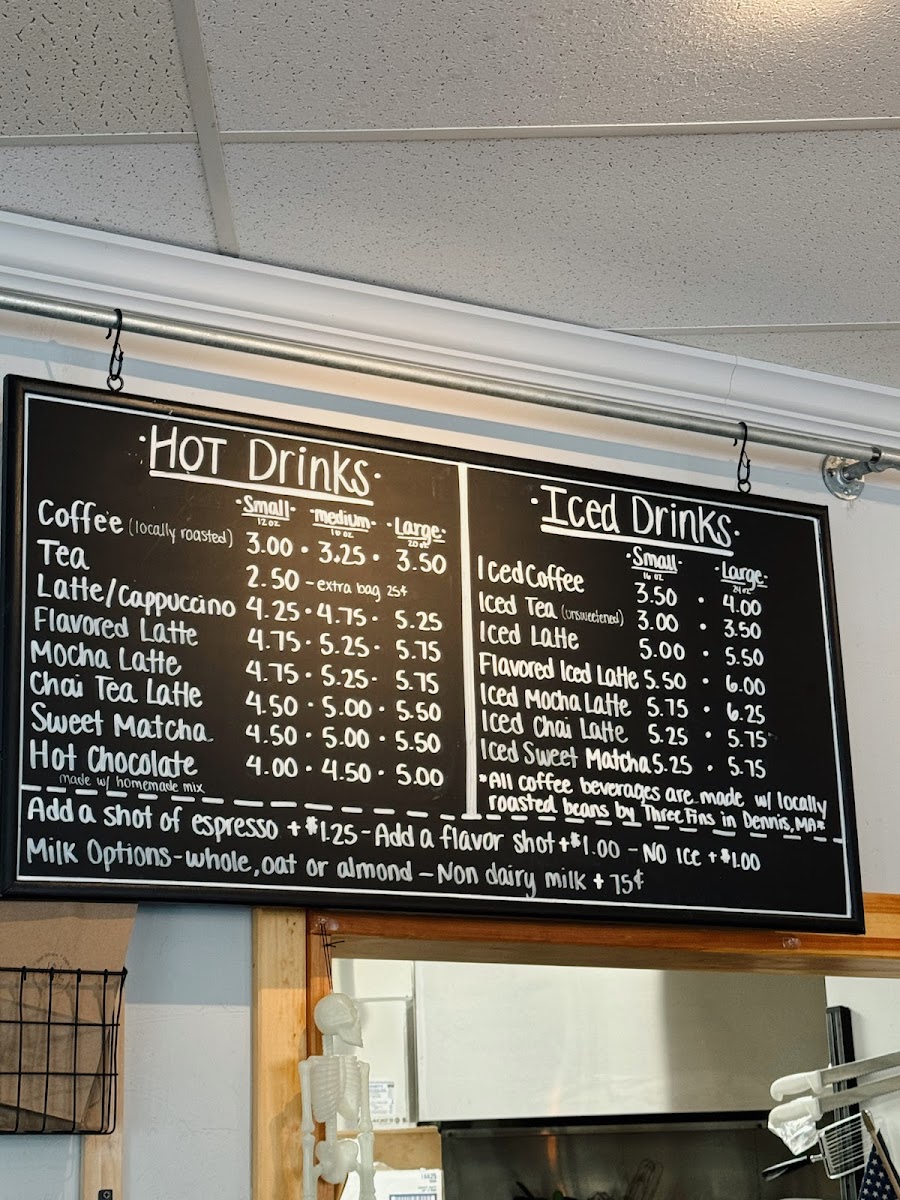 ·Hot Drinks·
·Small· ·medium· ·Large·
12 oz. 16 oz. 20 oz.
Coffee (locally roasted) 3.00 · 3.25 · 3.50
Tea 2.50 - extra bag 25¢
Latte/Cappuccino 4.25 · 4.75 · 5.25
Flavored Latte 4.75 · 5.25 · 5.75
Mocha Latte 4.75 · 5.25 · 5.75
Chai Tea Latte 4.50 · 5.00 · 5.50
Sweet Matcha 4.50 · 5.00 · 5.50
Hot Chocolate 4.00 · 4.50 · 5.00
made w/ homemade mix
·Iced Drinks·
·Small· ·Large·
16 oz 24 oz
Iced Coffee 3.50 · 4.00
Iced Tea (unsweetened) 3.00 · 3.50
Iced Latte 5.00 · 5.50
Flavored Iced Latte 5.50 · 6.00
Iced Mocha Latte 5.75 · 6.25
Iced Chai Latte 5.25 · 5.75
Iced Sweet Matcha 5.25 · 5.75
*All coffee beverages are made w/ locally
roasted beans by Three Fins in Dennis, MA*
Add a shot of espresso +$1.25 - Add a flavor shot +$1.00 - NO ICE +$1.00
Milk Options - whole, oat or almond - Non dairy milk + 75¢